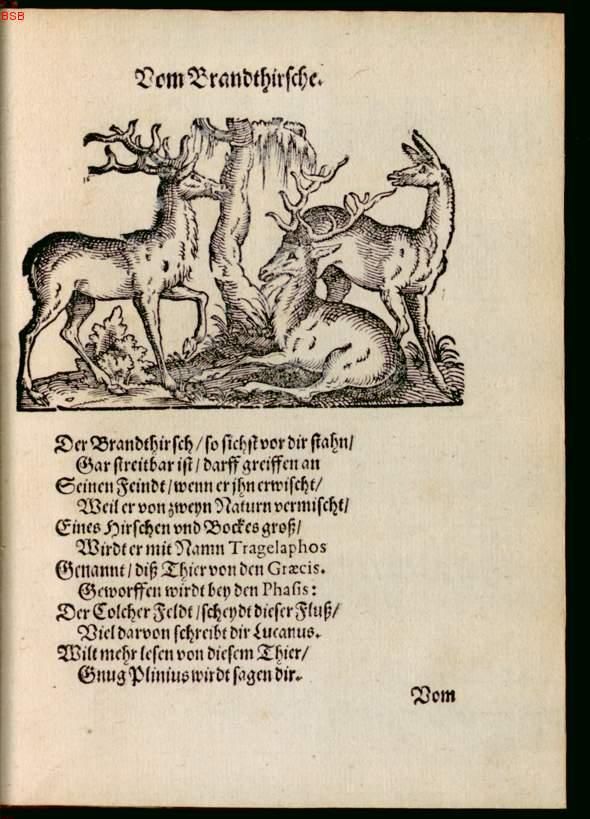 BSB
Vom Brandthirsche.
Der Brandthirsch / so sichst vor dir stahn /
Gar streitbar ist / darff greiffen an
Seinen Feindt / wenn er jhn erwischt /
Weil er von zweyn Naturn vermischt /
Eines Hirschen vnd Bockes groß /
Wirdt er mit Namn Tragelaphos
Genannt / diß Thier von den Græcis.
Geworffen wirdt bey den Phasis:
Der Colcher Feldt / scheydt dieser Fluß /
Viel darvon schreibt dir Lucanus.
Wilt mehr lesen von diesem Thier /
Gnug Plinius wirdt sagen dir.
Vom